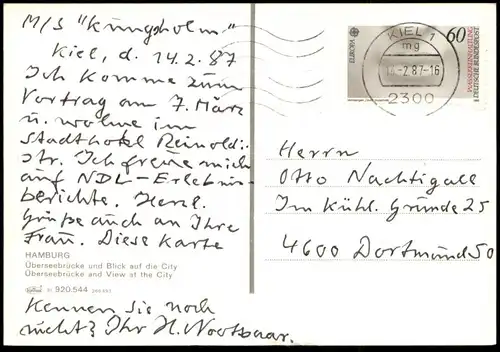 M/S "Kungsholm"
Kiel, d. 14.2.87
Ich komme zum
Vortrag am 7. März
u. wohne im
Stadthotel Reinoldi-
str. Ich freue mich
auf NDL-Erlebnis-
berichte. Herzl.
Grüße auch an Ihre
Frau. Diese Karte
HAMBURG
Überseebrücke und Blick auf die City
Überseebrücke and View at the City
920.544
Kennen Sie noch
nicht? Ihr H. Nootbaar.
EUROPA
60
WASSERREINHALTUNG
DEUTSCHE BUNDESPOST
KIEL 1
mg
-2.87-16
2300
Herrn
Otto Nachtigall
Im Kühl. Grunde 25
4600 Dortmund 50